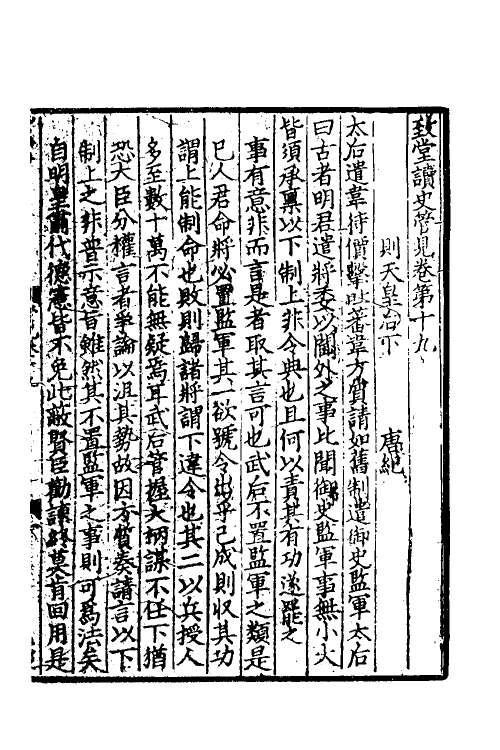 致堂讀史管見卷第十九
則天皇后下　唐紀
太后遣韋待價擊吐蕃韋方質請如舊制遣御史監軍太后
曰古者明君遣將委以閫外之事比聞御史監軍事無小大
皆須承禀以下制上非令典也且何以責其有功遂罷之
事有意非而言是者取其言可也武后不置監軍之類是
已人君命將必置監軍其一欲號令出乎己成則収其功
謂上能制命也敗則歸諸將謂下違令也其二以兵授人
多至數十萬不能無疑焉耳武后管握大柄謀不任下猶
恐大臣分權言者爭論以沮其勢故因方質奏請言以下
制上之非普示意旨雖然其不置監軍之事則可爲法矣
自明皇肅代德憲皆不免此敝賢臣勸諫終莫肯回用是